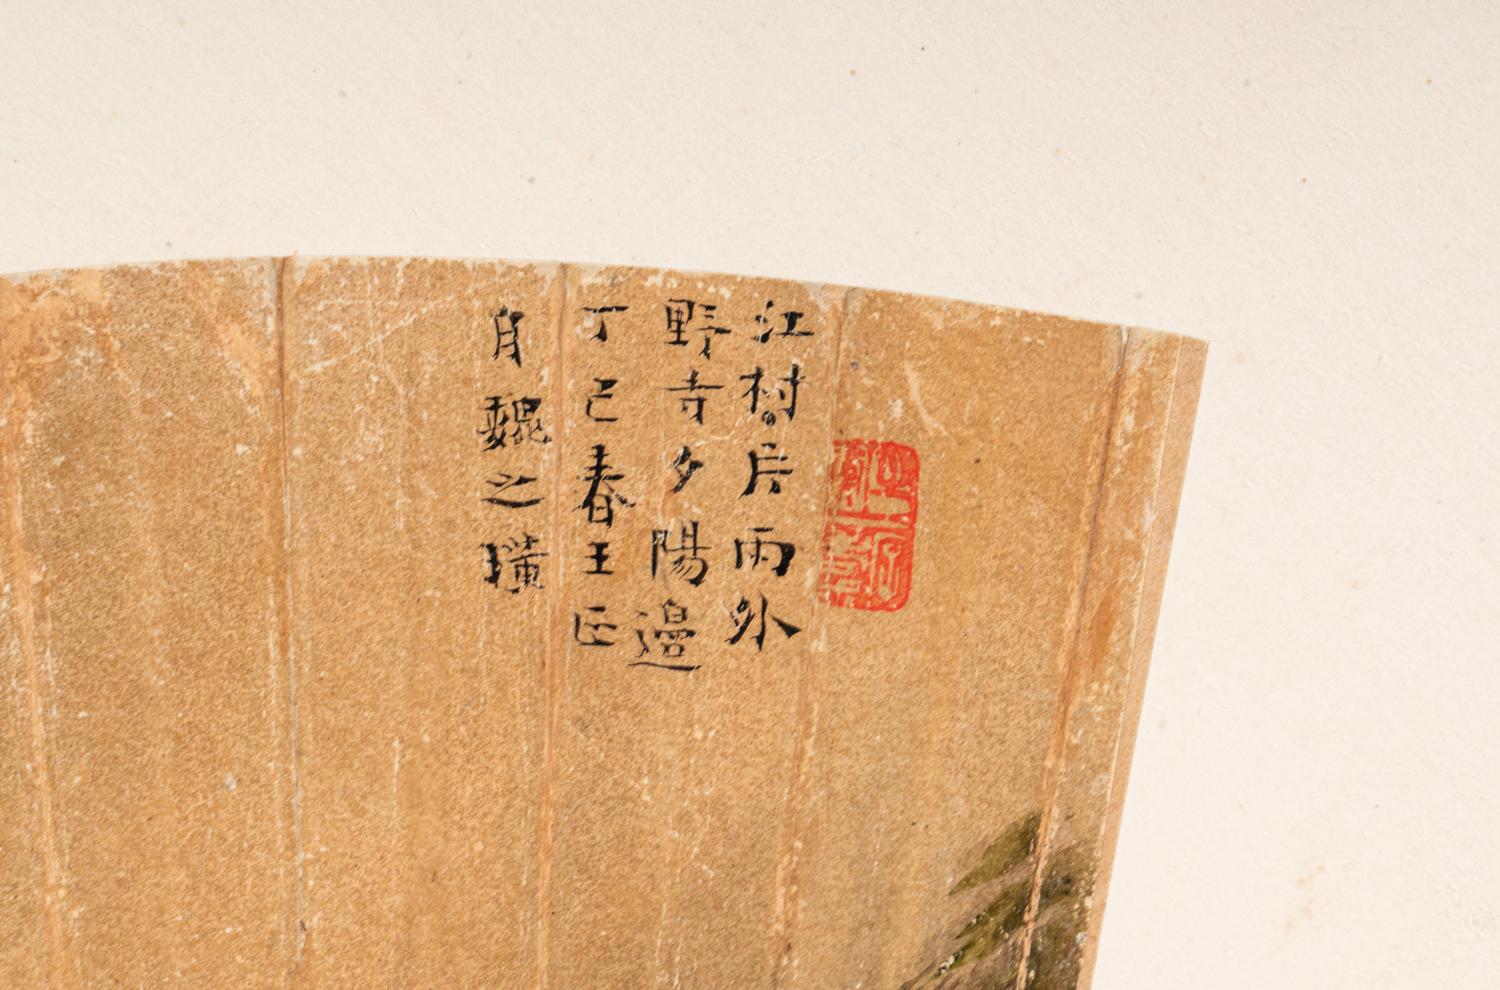 江村片雨外
野寺夕陽邊
丁巳春王正
月魏之璜